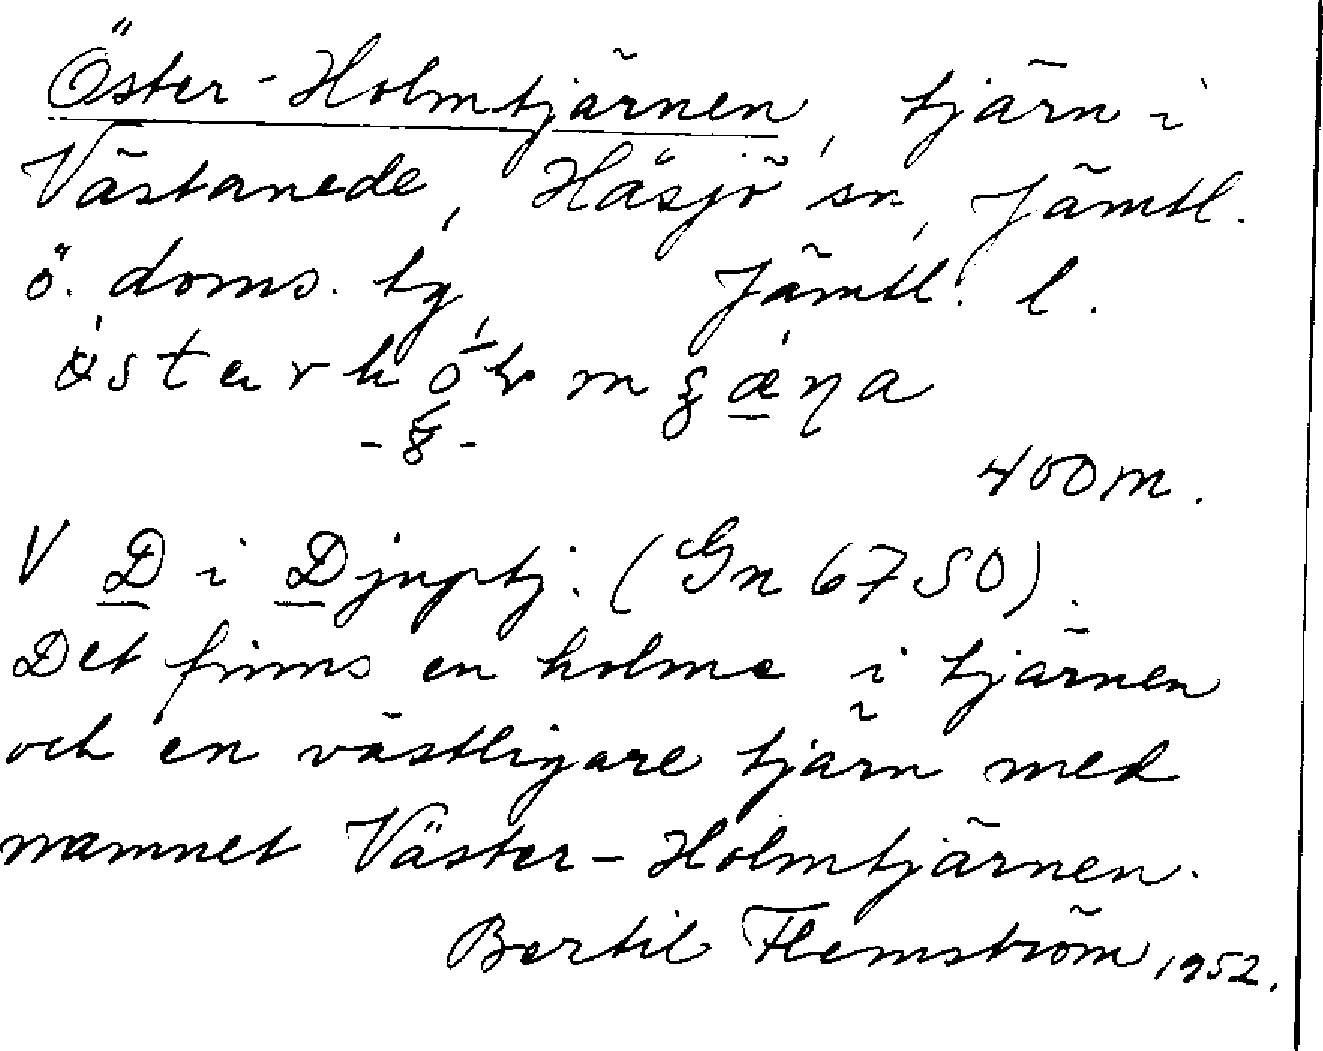 Öster-Holmtjärnen, tjärn i
Västanede, Håsjö sn, Jämtl.
ö. doms. tg, Jämtl. l.
400 m.
V D i Djuptj. (Gn 6750).
Det finns en holme i tjärnen
och en västligare tjärn med
namnet Väster-Holmtjärnen.
Bertil Flemström 1952.